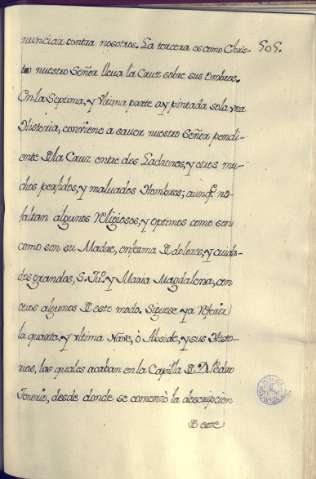 nunciar contra nosotros. La tercera es como Chris- 505.
to nuestro Señor lleva la Cruz sobre sus ombros.
En la Septima, y Ultima parte ay pintada sola una
Historia, conviene a saver nuestro Señor pendi-
ente D la Cruz entre dos Ladrones, y otros mu-
chos perfidos, y malvados Hombres; aunq.e no
faltan algunos Religiosos, y optimos como son
como son su Madre, enferma D dolores, y cuida-
dos grandes, S. Jŭ. y Maria Magdalena, con
otros algunos D este modo. Siguese ya referir
la quarta, y ultima Nave, ò Abside, y sus Histo-
rias, las quales acaban en la Capilla D D. Pedro
Tenorio, desde donde se comenzò la descripcion
D este